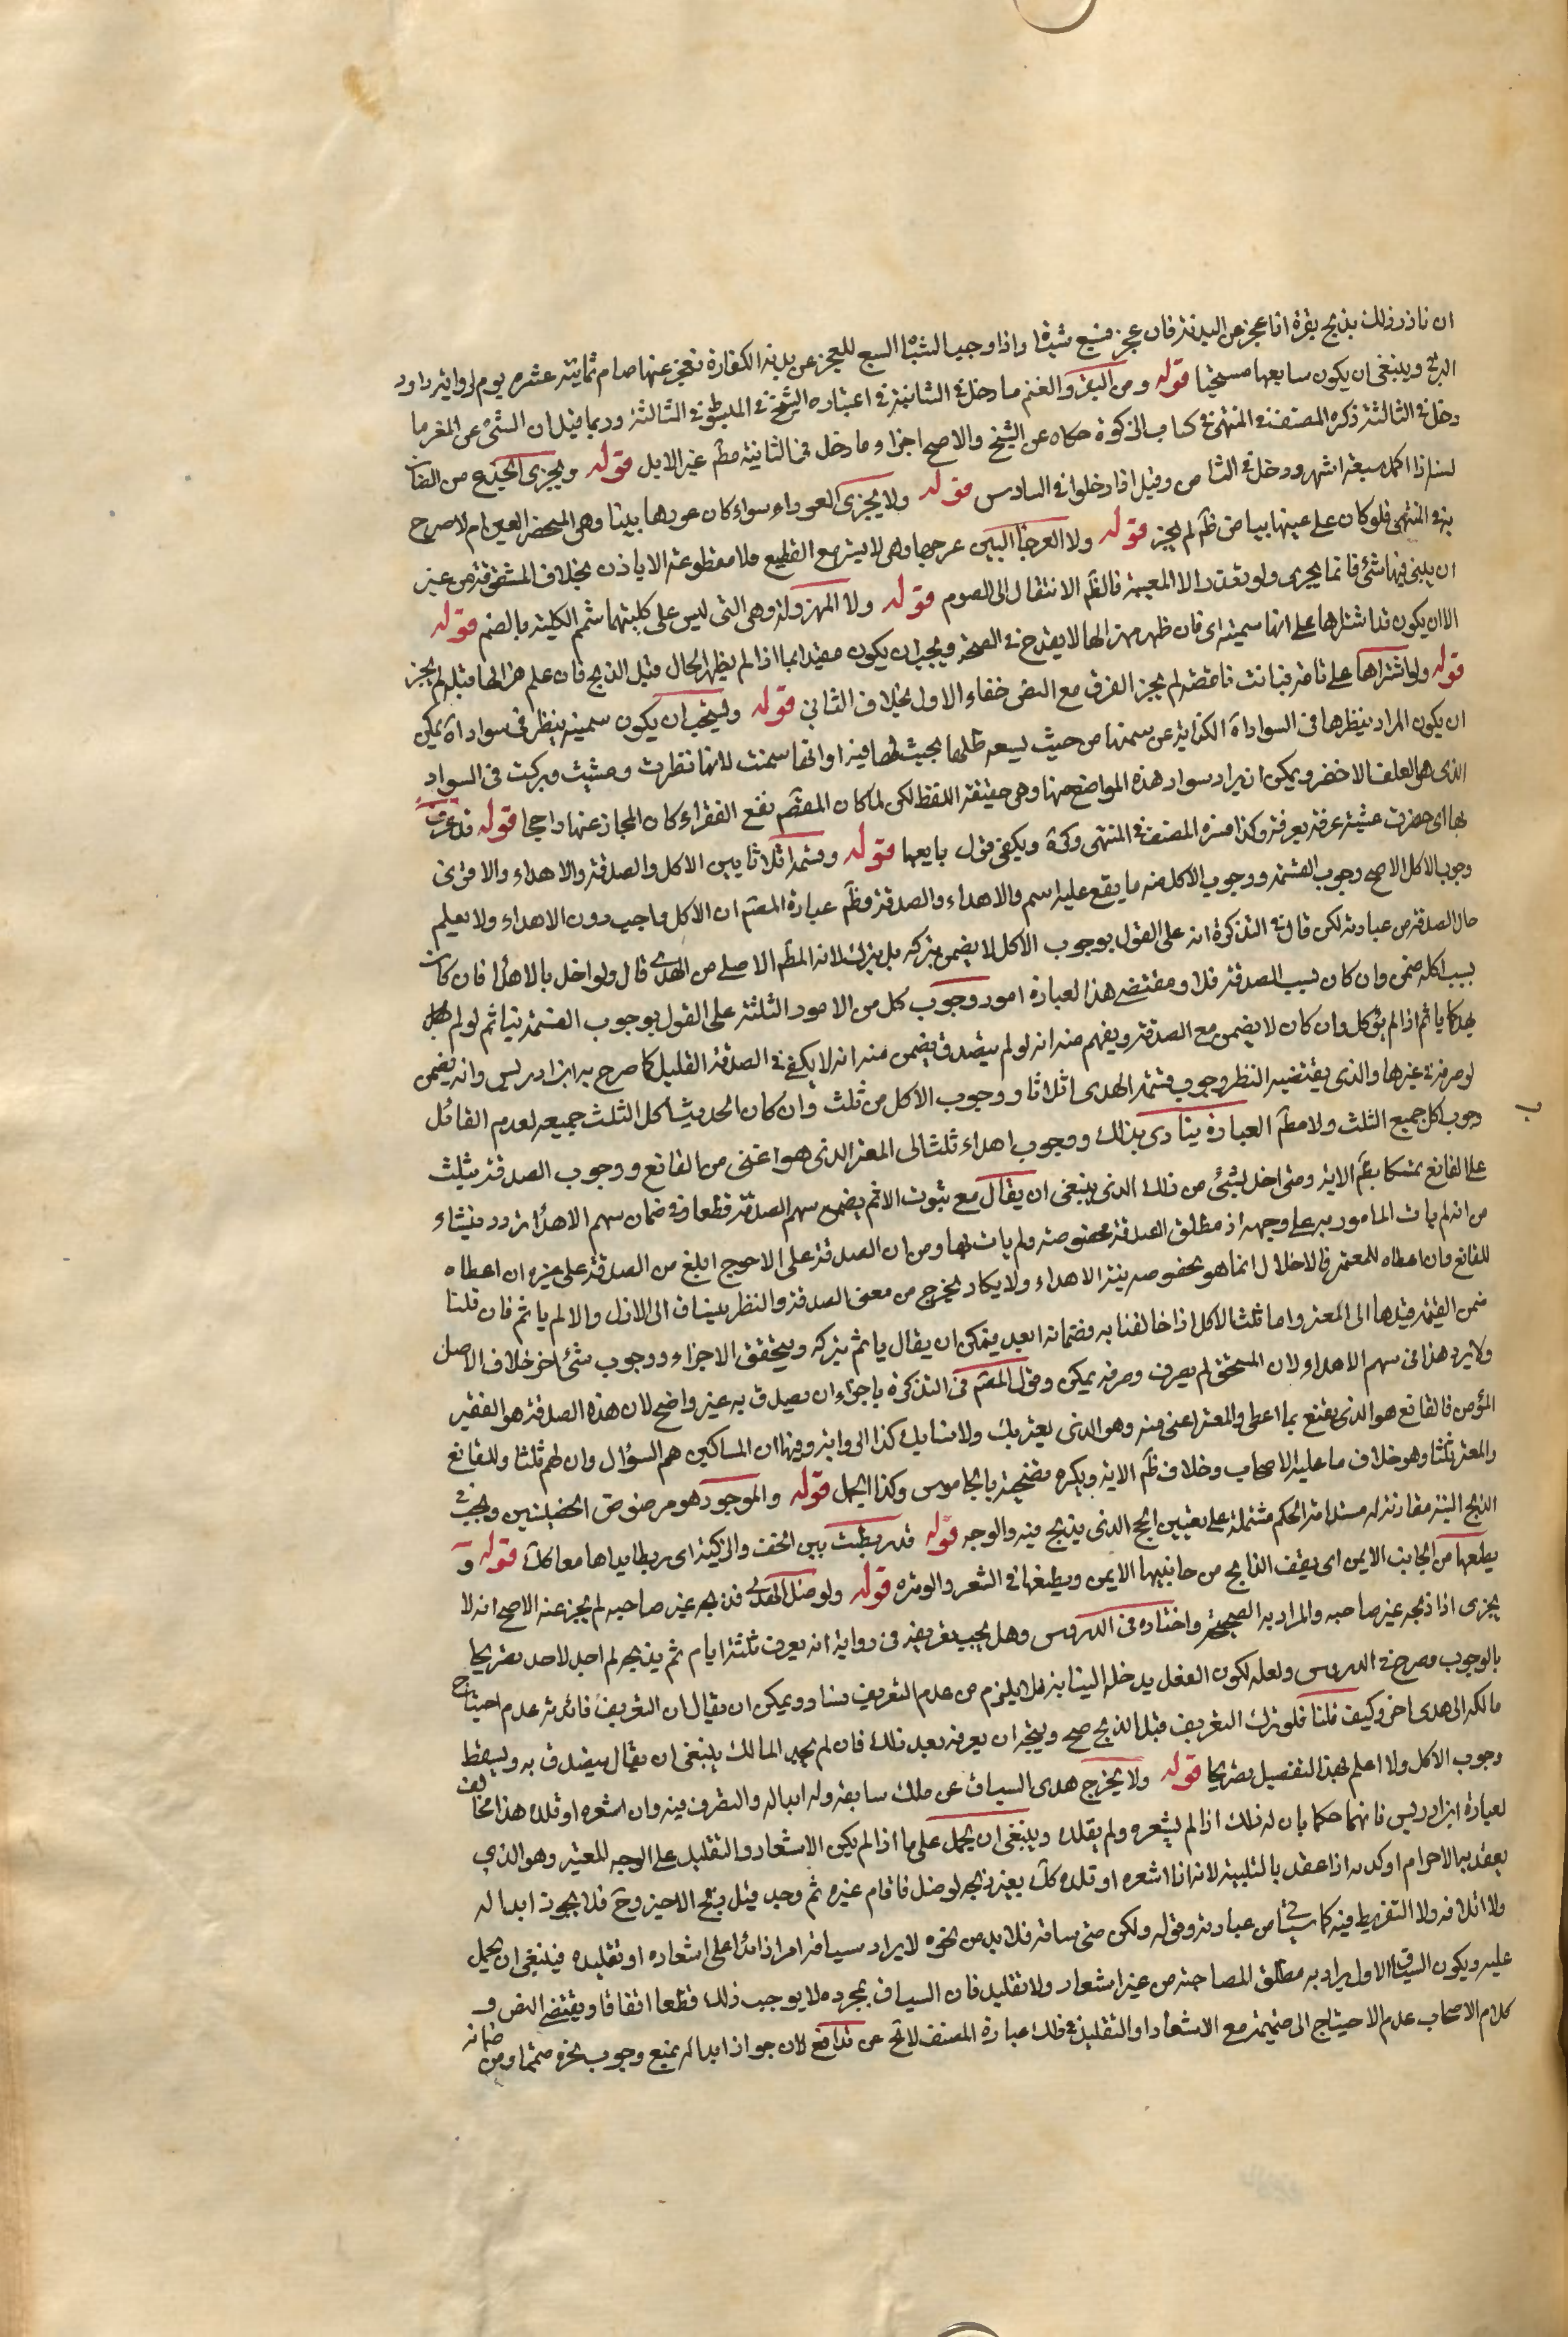 ان ناذر ذلك بذبح بقرة اذا عجز عن البدنة فان عجز فسبع شياه واذا وجب الشياه السبع للعجز عن بدنة الكفارة فعجز عنها صام ثمانية عشر يوم لرواية داود
البرقي وينبغي ان يكون سابعها مستحبا قوله ومن البقر والغنم ما دخل في الثانية في اعتباره الشيخ في المبسوط في الثالثة وربما قيل ان الشيء عن المغرما
دخل في الثالثة ذكره المصنف في المنتهى في كتاب الزكوة حكاه عن الشيخ والاصح اجزاء ما دخل في الثانية مط غير الابل قوله ويجزي الجذع من الضان
لسنة اذا اكمل سبعة اشهر ودخل في الثامن وقيل اذا دخلوا في السادس قوله ولا يجزي العوراء سواء كان عورها بينا وهي المنخسف العين ام لا صرح
به في المنتهى فلو كان على عينها بياض ظ لم يجز قوله ولا العرجاء البين عرجها وهي لا يسير مع القطيع ولا مقطوعة الاذن بخلاف المشقوقة من غير
ان يبقى فيها شيء فانما يجزي ولو تعذر الا المعيبة فالظ الانتقال الى الصوم قوله ولا المهزولة وهي التي ليس على كليتها شحم الكلية بالضم قوله
الا ان يكون قد اشتراها على انها سمينة اي فان ظهر هزالها لا يقدح في الصحة ويجب ان يكون مقيدا بما اذا لم يظهر الحال قبل الذبح فان علم هزالها قبله لم يجز
قوله ولو اشتراها على تامة فبانت ناقصة لم يجز الفرق مع النص خفاء الاول بخلاف الثاني قوله ويستحب ان يكون سمينة ينظر في سواد اه يمكن
ان يكون المراد ينظرها في السواد اه الكناية عن سمنها من حيث يسعه ظلها بحيث او انها سمنت لانها نظرت ومشت وبركت في السواد
الذي هو العلف الاخضر ويمكن ان يراد سواد هذه المواضع منها وهي حقيقة اللفظ لكن لما كان المقصد نفع الفقراء كان المجاز عنها راجحا قوله قد عرف
بها اي حضرت عشية عرفة بعرفة وكذا فسره المصنف في المنتهى وكره ويكفي قول بايعها قوله وقسمته اثلاثا بين الاكل والصدقة والاهداء والاقوى
وجوب الاكل الاصح وجوب القسمة ووجوب الاكل منه ما يقع عليه اسم والاهداء والصدقة وظ عبارة المصنف ان الاكل واجب دون الاهداء ولا يعلم
حال الصدقة من عبارته لكن قال في التذكرة انه على القول بوجوب الاكل لا يضمن بتركه بل بتركه لانه المط الاصلي من الهدي قال ولو اخل بالاهداء فان كان
بسبب اكله ضمن وان كان بسبب الصدقة فلا ومقتضى هذا لعبارة امور وجوب كل من الامور الثلثة على القول بوجوب القسمة ثم لو لم
يهد ياثم اذا لم ياكل وان كان لا يضمن مع الصدقة ويفهم منه انه لو لم يتصدق يضمن منه انه لا يكفي في الصدقة القليل كما صرح به ابن ادريس وانه يضمن
لو صرفه في غيرها والذي يقتضيه النظر وجوب قسمة الهدي اثلاثا ووجوب الاكل من ثلث وان كان الحديث اكل الثلث جميعه لعدم القائل
وجوب اكل جميع الثلث ولا مط العبارة ينادي بذلك ووجوب اهداء ثلث الى المعتر الذي هو اغنى من القانع ووجوب الصدقة بثلث
على القانع تمسكا بظ الاية ومتى اخل بشيء من ذلك الذي ينبغي ان يقال مع ثبوت الاثم يضمن سهم الصدقة قطعا وفي ضمان سهم الاهداء تردد ينشاء
من انه لم يات المامور به على وجهه اذ مطلق الصدقة مخصوصة ولم يات بها ومن ان الصدقة على الاحوج ابلغ من الصدقة على غيره ان اعطاه
للقانع وان اعطاه للمعتر فالاخلال انما هو بخصوصية الاهداء ولا يكاد يخرج من معنى الصدقة والنظر ينساق الى الاول والا لم ياثم فان قلنا
ضمن القيمة فيدها الى المعتر واما ثلث الاكل اذا خالفنا به وضمانه ابعد فيمكن ان يقال ياثم بتركه ويتحقق الاجزاء ووجوب شيء اخر خلاف الاصل
ولا يرد هذا في سهم الاهداء لان المستحق لم يصرف وصرفه يمكن وقول المصنف في التذكرة باجزاء ان تصدق به غير واضح لان هذه الصدقة هو الفقير
المؤمن فالقانع هو الذي يقنع بما اعطى والمعتر اغنى منه وهو الذي يعتريك ولا يسالك كذا الى واية وفيها ان المساكين هم السؤال وان لهم ثلثا وللقانع
والمعتر ثلثا وهو خلاف ما عليه الاصحاب وخلاف ظ الاية ويكره تضحية بالجاموس وكذا الجمل قوله والموجوء هو مرضوض الخصيتين ويجب في
الذبح النية مقارنة له مستدامة الحكم مشتملة على تعيين الحج الذي يذبح فيه والوجه قوله قد ربطت بين الخف والركبة اي ربطا يداها معا كل قوله و
يطعنها من الجانب الايمن اي يقف الذابح من جانبيها الايمن ويطعنها في الثغر والوتره قوله ولو ضل الهدي فذبحه غير صاحبه لم يجز عنه الاصح انه لا
يجزي اذا ذبحه غير صاحبه والمراد به الصحيحة واختاره في الدروس وهل يجب تعريفه في رواية انه يعرف ثلثة ايام ثم يذبحه لم اجد لاحد تصريحا
بالوجوب وصرح في الدروس ولعله لكون الفعل يدخله النيابة فلا يلزم من عدم التعريف فسادو ويمكن ان يقال ان التعريف فائدته عدم احتياج
مالكه الى هدي اخر وكيف قلنا فلو ترك التعريف قبل الذبح صح ويتجه ان يعرفه بعد ذلك فان لم يجد المالك ينبغي ان يقال يتصدق به ويسقط
وجوب الاكل ولا اعلم لهذا التفصيل تصريحا قوله ولا يخرج هدي السياق عن ملك سابقه وله ابداله والتصرف فيه وان اشعره او قلده هذا مخالف
لعبارة ابن ادريس فانهما حكما بان له ذلك اذا لم يشعره ولم يقلده وينبغي ان يحمل على ما اذا لم يكن الاشعار والتقليد على الوجه المعتبر وهو الذي
يعقد به الاحرام او كده اذا عقد بالتلبية لانه اذا اشعره او قلده كل يعين ذبحه لو ضل فاقام غيره ثم وجد قبل ذبح الاخير وح فلا يجوز ابداله
ولا اتلافه ولا التفريط فيه كما سياتي من عبارته وقوله ولكن متى ساقه فلا بد من نحره لا يراد سياقه امرا زائدا على اشعاره او تقليده فينبغي ان يحمل
عليه ويكون السياق الاول يراد به مطلق المصاحبة من غير اشعار ولا تقليد فان السياق بمجرده لا يوجب ذلك قطعا اتفاقا ويقتضي النص و
كلام الاصحاب عدم الاحتياج الى ضميمة مع الاشعار او التقليد في ظك عبارة المصنف لا تخ عن تدافع لان جواز ابداله يمنع وجوب نحره ومن
ضمانه